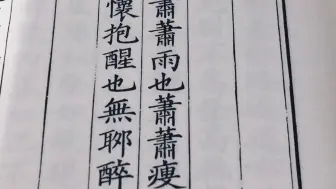 蕭蕭雨也蕭蕭瘦
懷抱醒也無聊醉